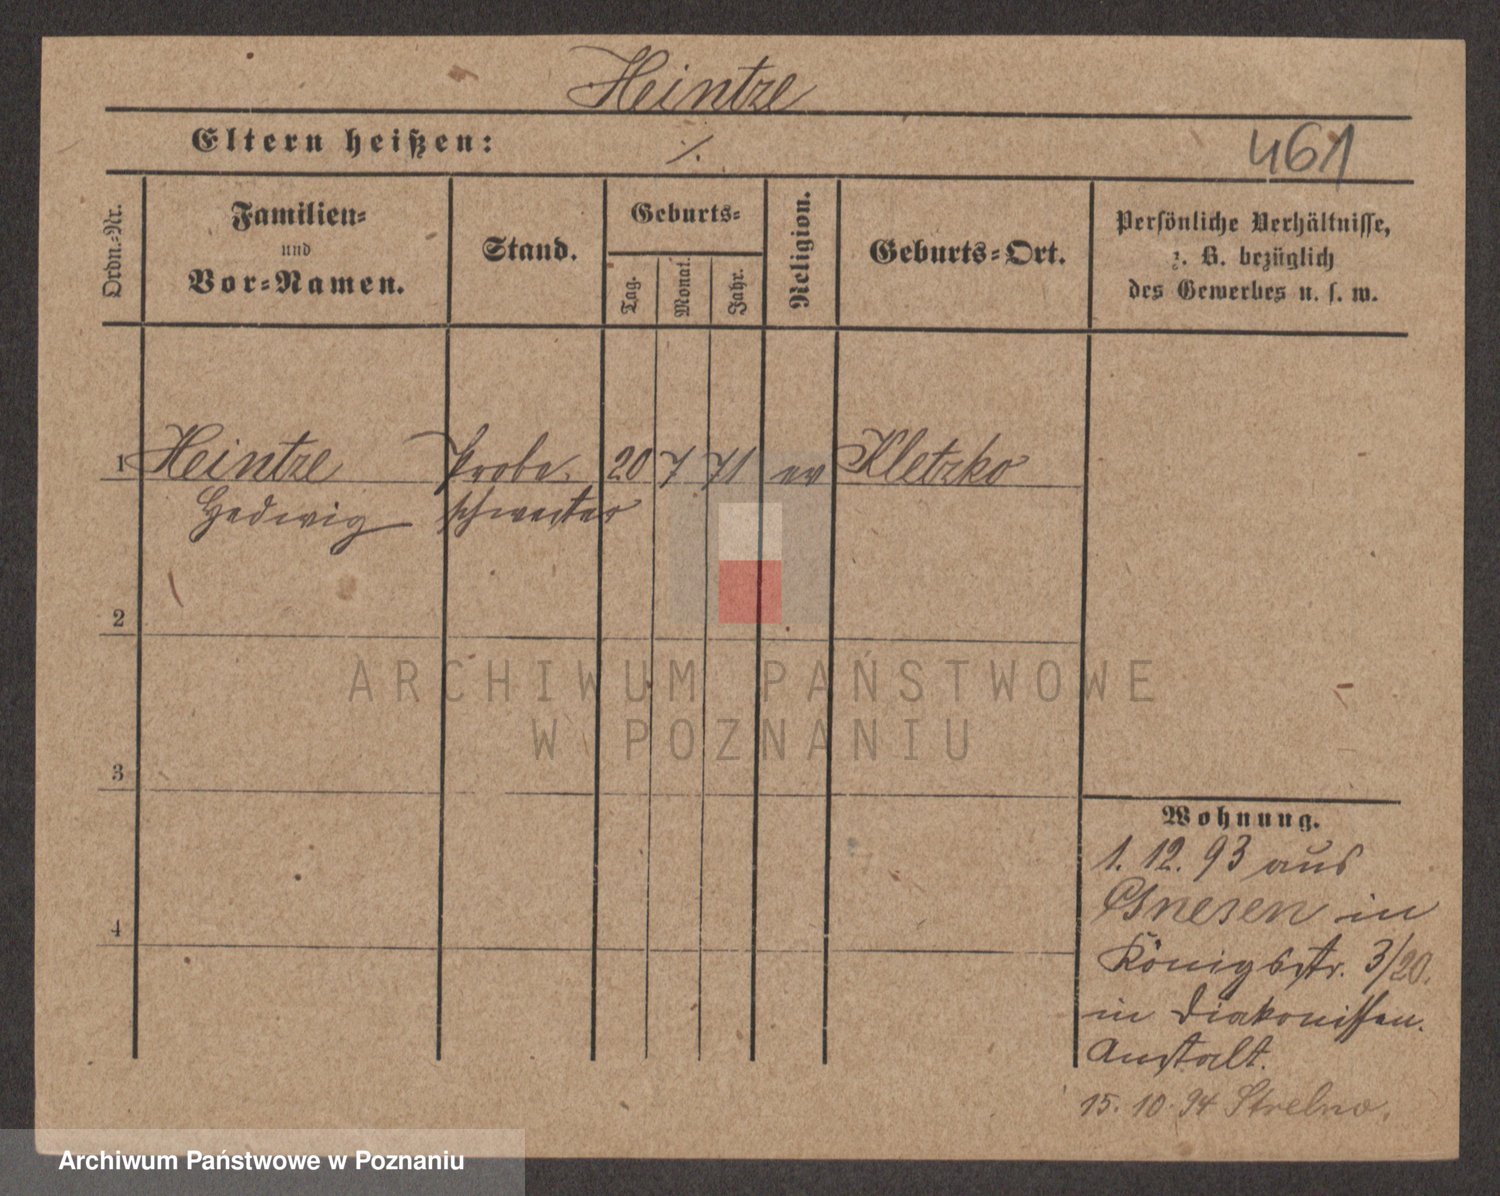 Heintze
Eltern heißen: ⁒
461
Ordn.-Nr.
Familien-
und
Vor-Namen.
Stand.
Geburts-
Tag.
Monat.
Jahr.
Religion.
Geburts-Ort.
Persönliche Verhältnisse,
z. B. bezüglich
des Gewerbes u. s. w.
1 Heintze Probe 20 7 71 ev Kletzko
Hedwig schwester
2
ARCHIWUM PAŃSTWOWE
W POZNANIU
3
Wohnung.
1. 12. 93 aus
Gnesen in
4
Königsstr. 3/20.
in Diakonissen.
Anstalt.
15. 10. 94 Strelno.
Archiwum Państwowe w Poznaniu